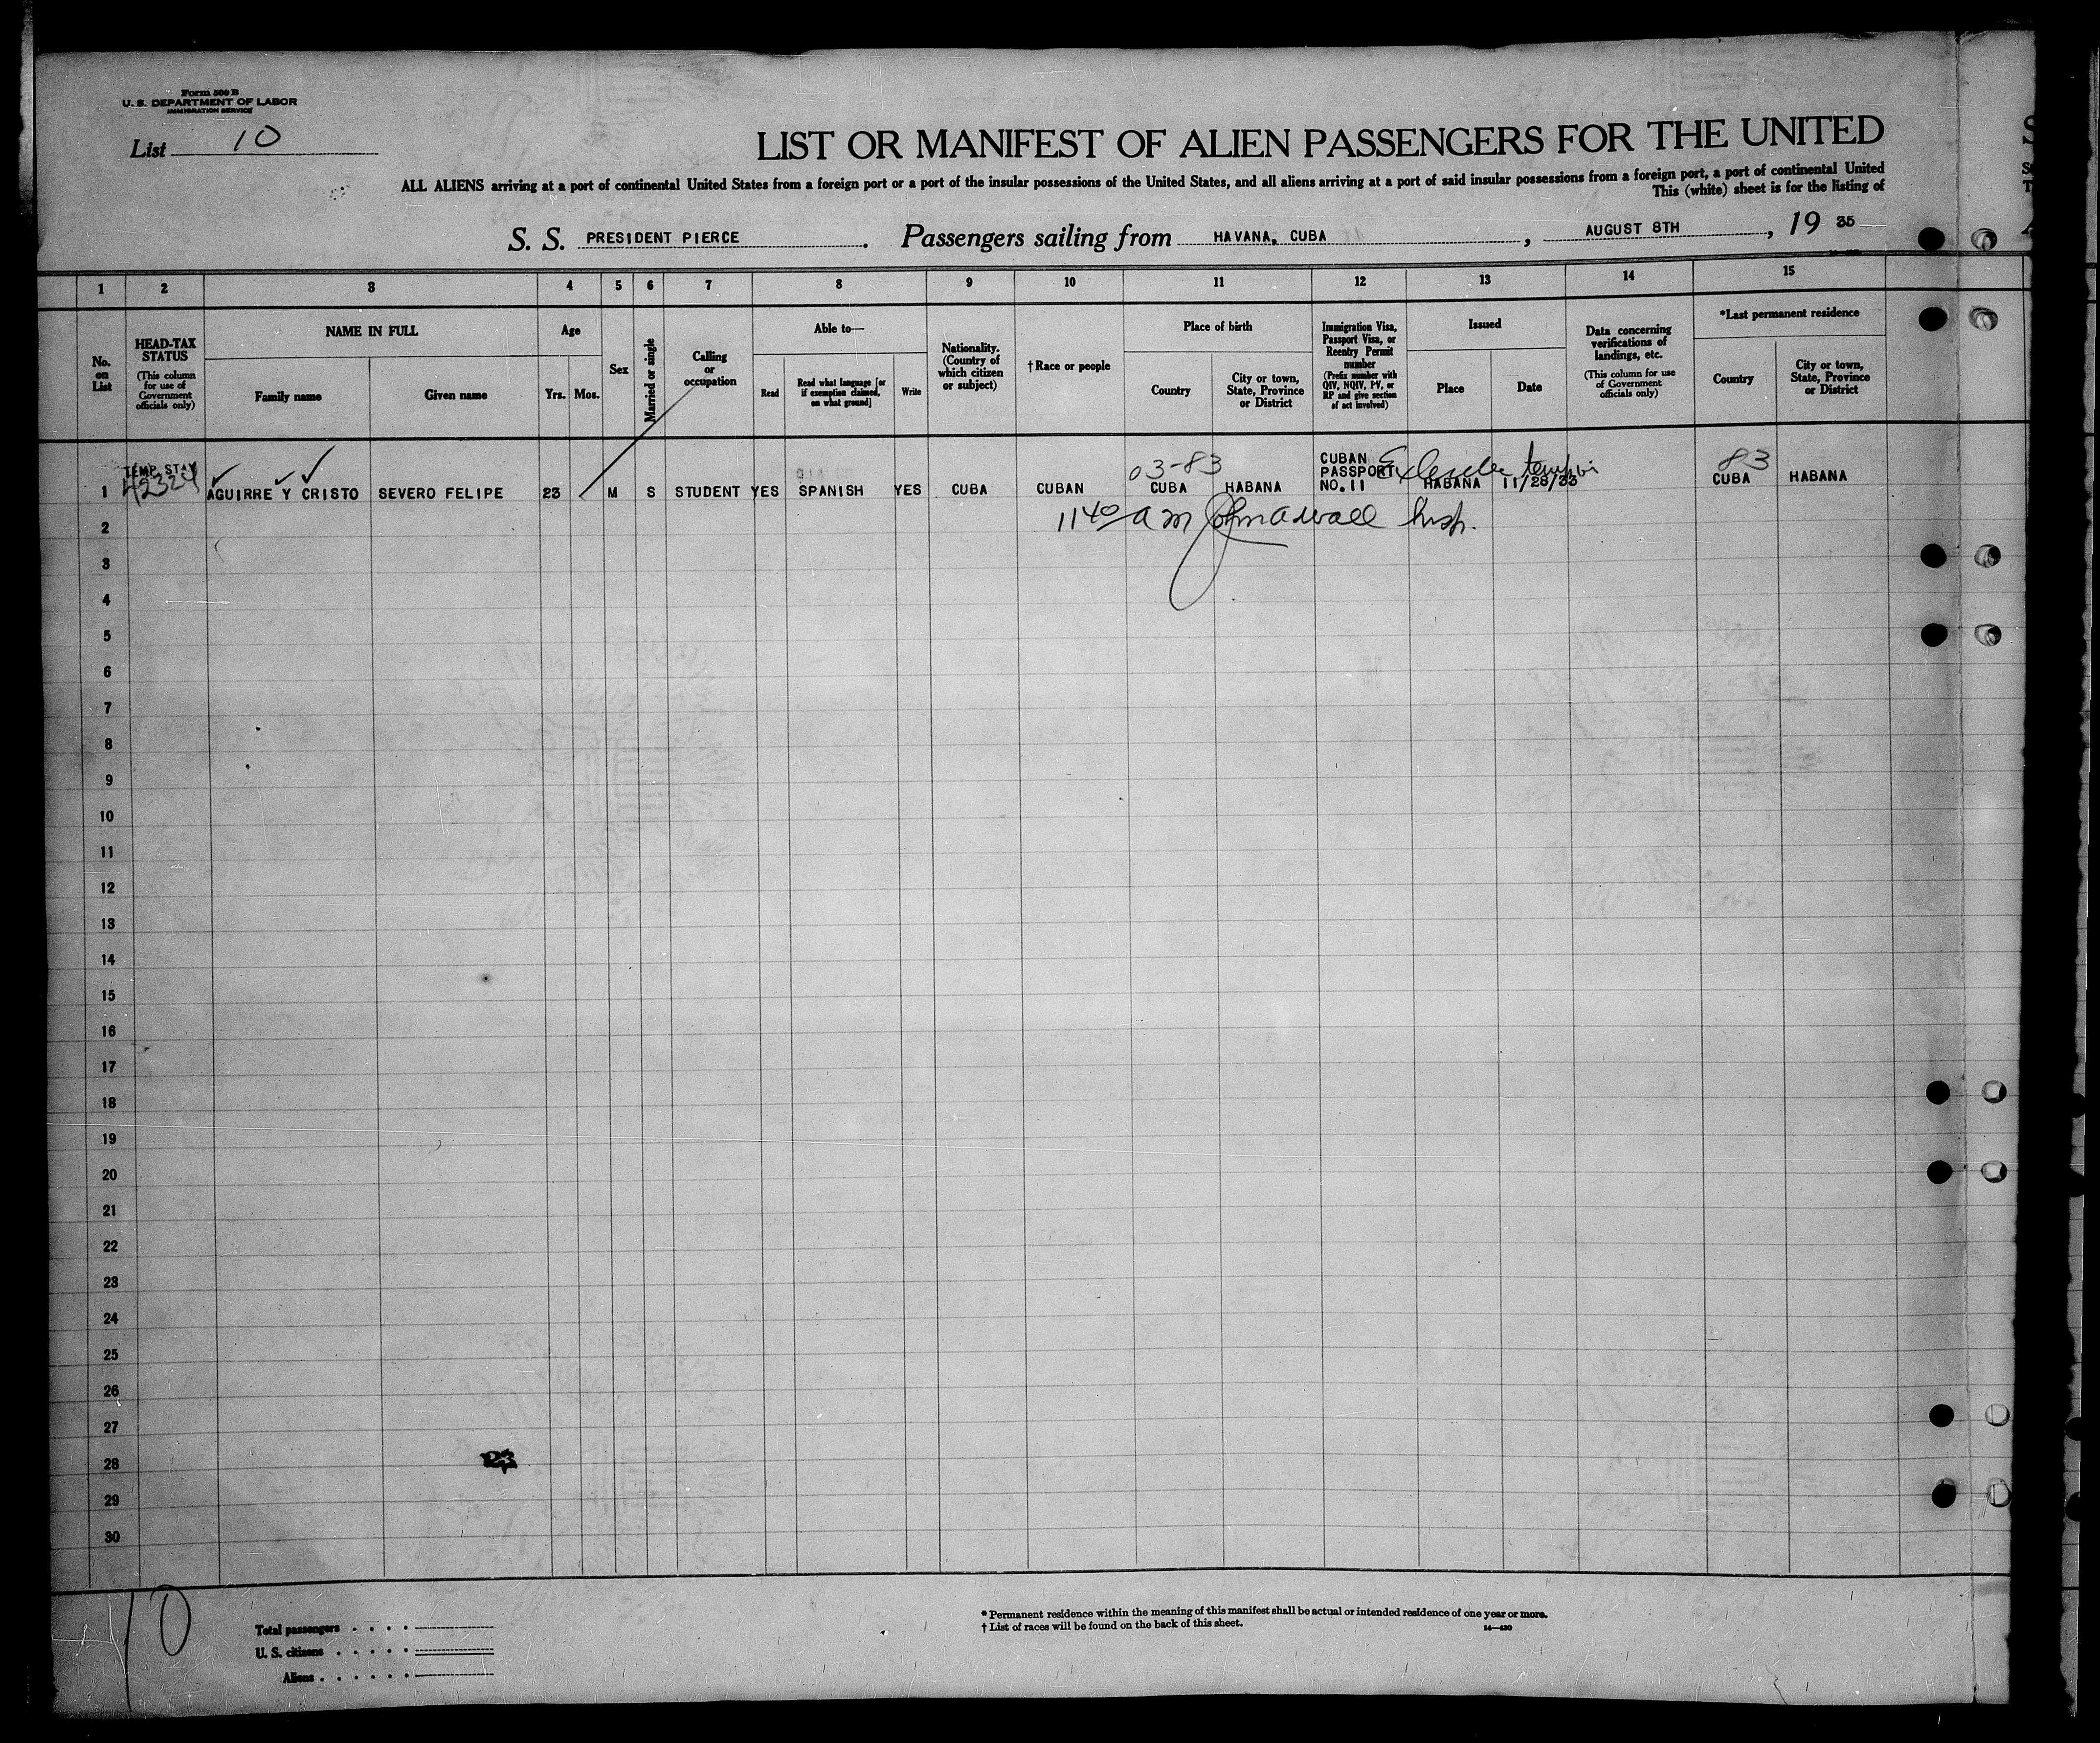 Form 500 B
U. S. DEPARTMENT OF LABOR
IMMIGRATION SERVICE
List 10
LIST OR MANIFEST OF ALIEN PASSENGERS FOR THE UNITED
ALL ALIENS arriving at a port of continental United States from a foreign port or a port of the insular possessions of the United States, and all aliens arriving at a port of said insular possessions from a foreign port, a port of continental United
This (white) sheet is for the listing of
S. S. PRESIDENT PIERCE . Passengers sailing from HAVANA, CUBA , AUGUST 8TH , 19 35
1 2 3 4 5 6 7 8 9 10 11 12 13 14 15
No. on List
HEAD-TAX STATUS (This column for use of Government officials only)
NAME IN FULL
Family name
Given name
Age
Yrs. Mos.
Sex
Married or single
Calling or occupation
Able to—
Read
Read what language [or if exemption claimed, on what ground]
Write
Nationality. (Country of which citizen or subject)
†Race or people
Place of birth
Country
City or town, State, Province or District
Immigration Visa, Passport Visa, or Reentry Permit number (Prefix number with QIV, NQIV, PV, or RP and give section of act involved)
Issued
Place
Date
Data concerning verifications of landings, etc. (This column for use of Government officials only)
*Last permanent residence
Country
City or town, State, Province or District
TEMP. STAY
42324
03-83
CUBAN
PASSPORT
83
1 AGUIRRE Y CRISTO SEVERO FELIPE 23 M S STUDENT YES SPANISH YES CUBA CUBAN CUBA HABANA NO. 11 HABANA 11/28/33 CUBA HABANA
2 11 40 am Insp.
3
4
5
6
7
8
9
10
11
12
13
14
15
16
17
18
19
20
21
22
23
24
25
26
27
28
29
30
10
Total passengers
U. S. citizens
Aliens
* Permanent residence within the meaning of this manifest shall be actual or intended residence of one year or more.
† List of races will be found on the back of this sheet.
14—430